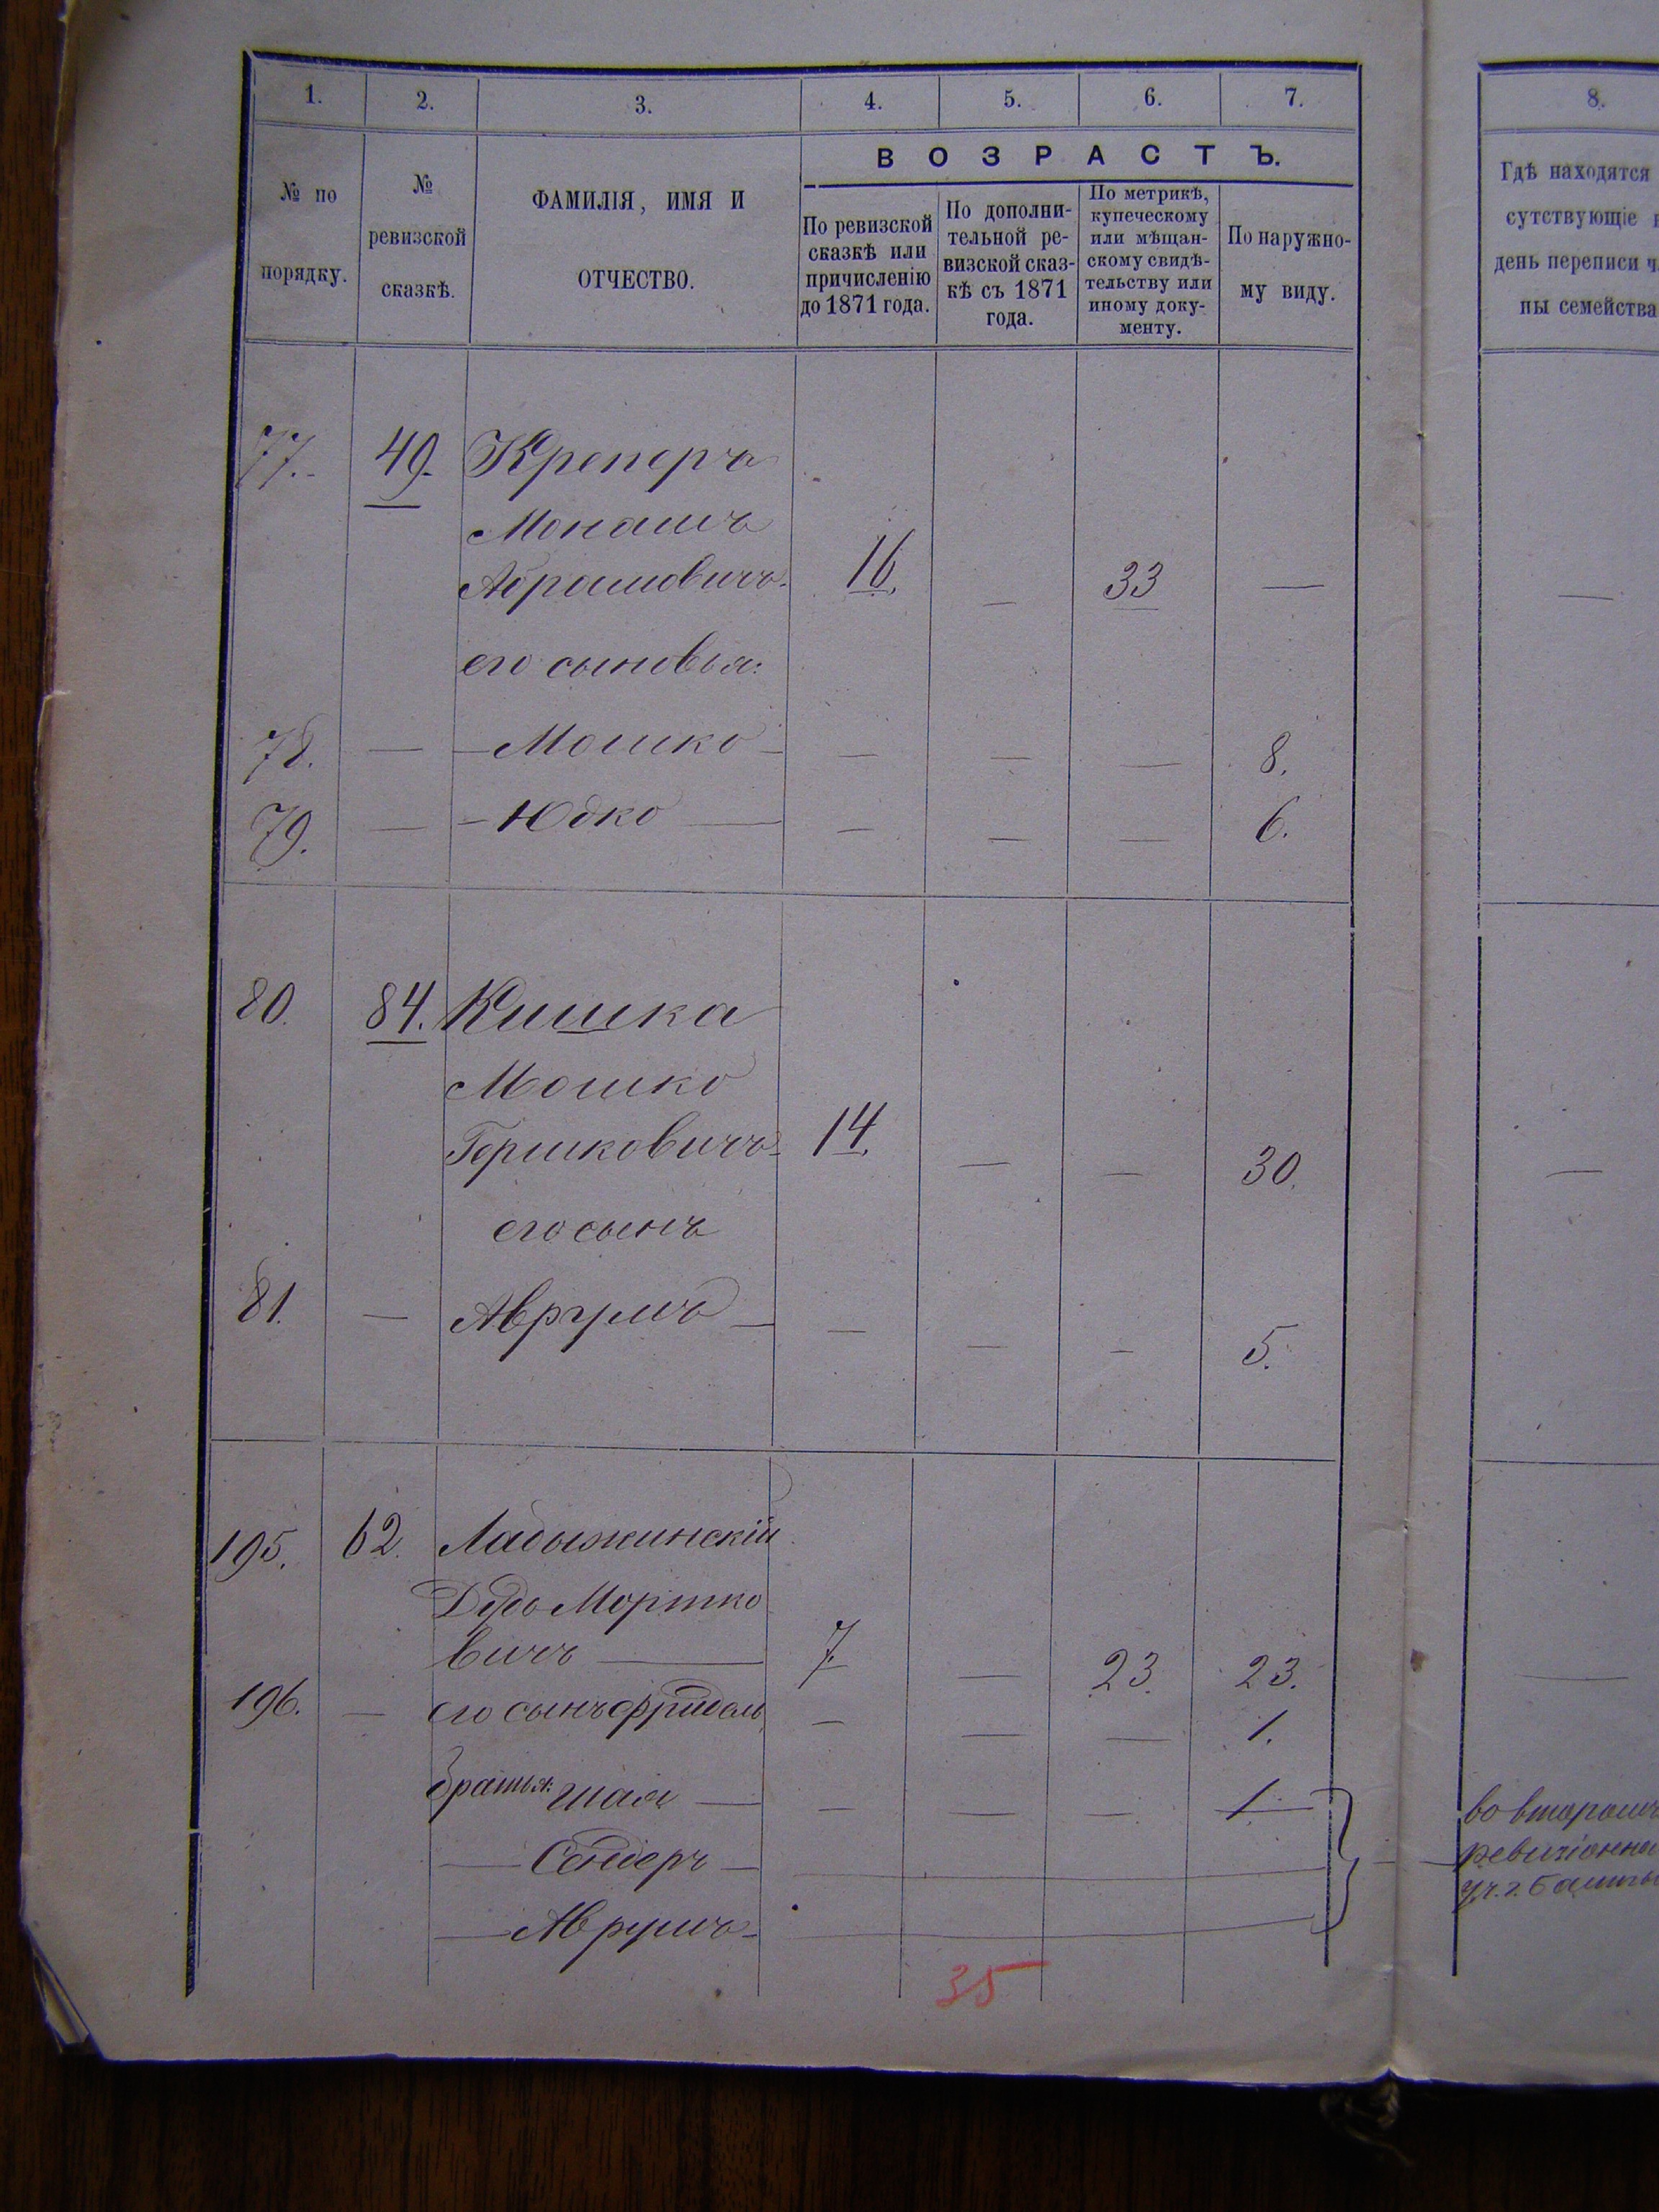 1. 2. 3. 4. 5. 6. 7. 8.
№ по порядку.
№ ревизской сказкѣ.
ФАМИЛІЯ, ИМЯ И
ОТЧЕСТВО.
ВОЗРАСТЪ.
По ревизской
сказкѣ или
причисленію
до 1871 года.
По дополни-
тельной ре-
визской сказ-
кѣ съ 1871
года.
По метрикѣ,
купеческому
или мѣщан-
скому свидѣ-
тельству или
иному доку-
менту.
По наружно-
му виду.
Гдѣ находятся
сутствующіе
день переписи
ны семейства
77. 49. Креперъ
Монашъ
Абрамовичъ. 16. — 33 — —
его сыновья:
78. — — Мошко — — — — 8.
79. — — Юдко — — — — 6.
80. 84. Кишка
Мошко
Гершковичъ 14. — — 30. —
его сынъ
81. — Аврумъ — — — — 5.
195. 62. Ладыжинскій
Дудь Мортко
вичъ — 7. — 23. 23. —
196. — его сынъ Фридель — — — 1.
братья: Шая — — — — 1.
— Сендеръ —
— Аврумъ —
во второмъ
ревизіонно
уч. г. Балты
35